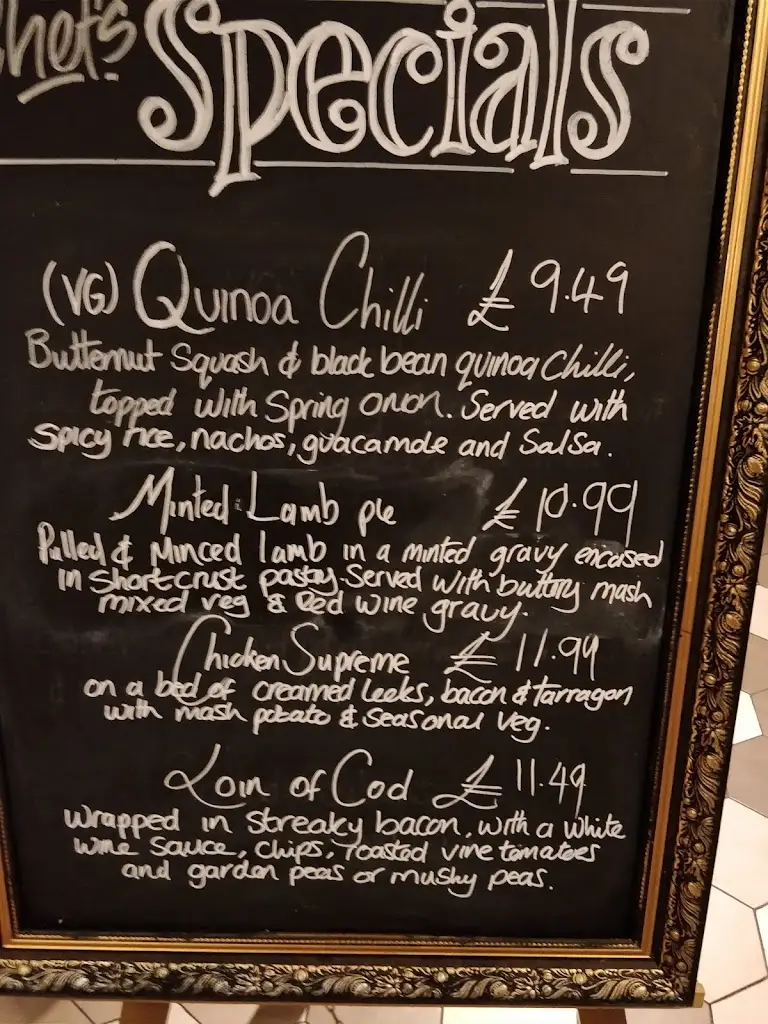 Chef's Specials
(VG) Quinoa Chilli £9.49
Butternut Squash & black bean quinoa Chilli,
topped with Spring onion. Served with
Spicy rice, nachos, guacamole and Salsa.
Minted Lamb pie £10.99
Pulled & Minced lamb in a minted gravy encased
in Shortcrust pastry. Served with buttery mash
mixed veg & Red wine gravy.
Chicken Supreme £11.99
on a bed of creamed leeks, bacon & tarragon
with mash potato & seasonal veg.
Loin of Cod £11.49
wrapped in streaky bacon, with a white
wine sauce, chips, roasted vine tomatoes
and garden peas or mushy peas.